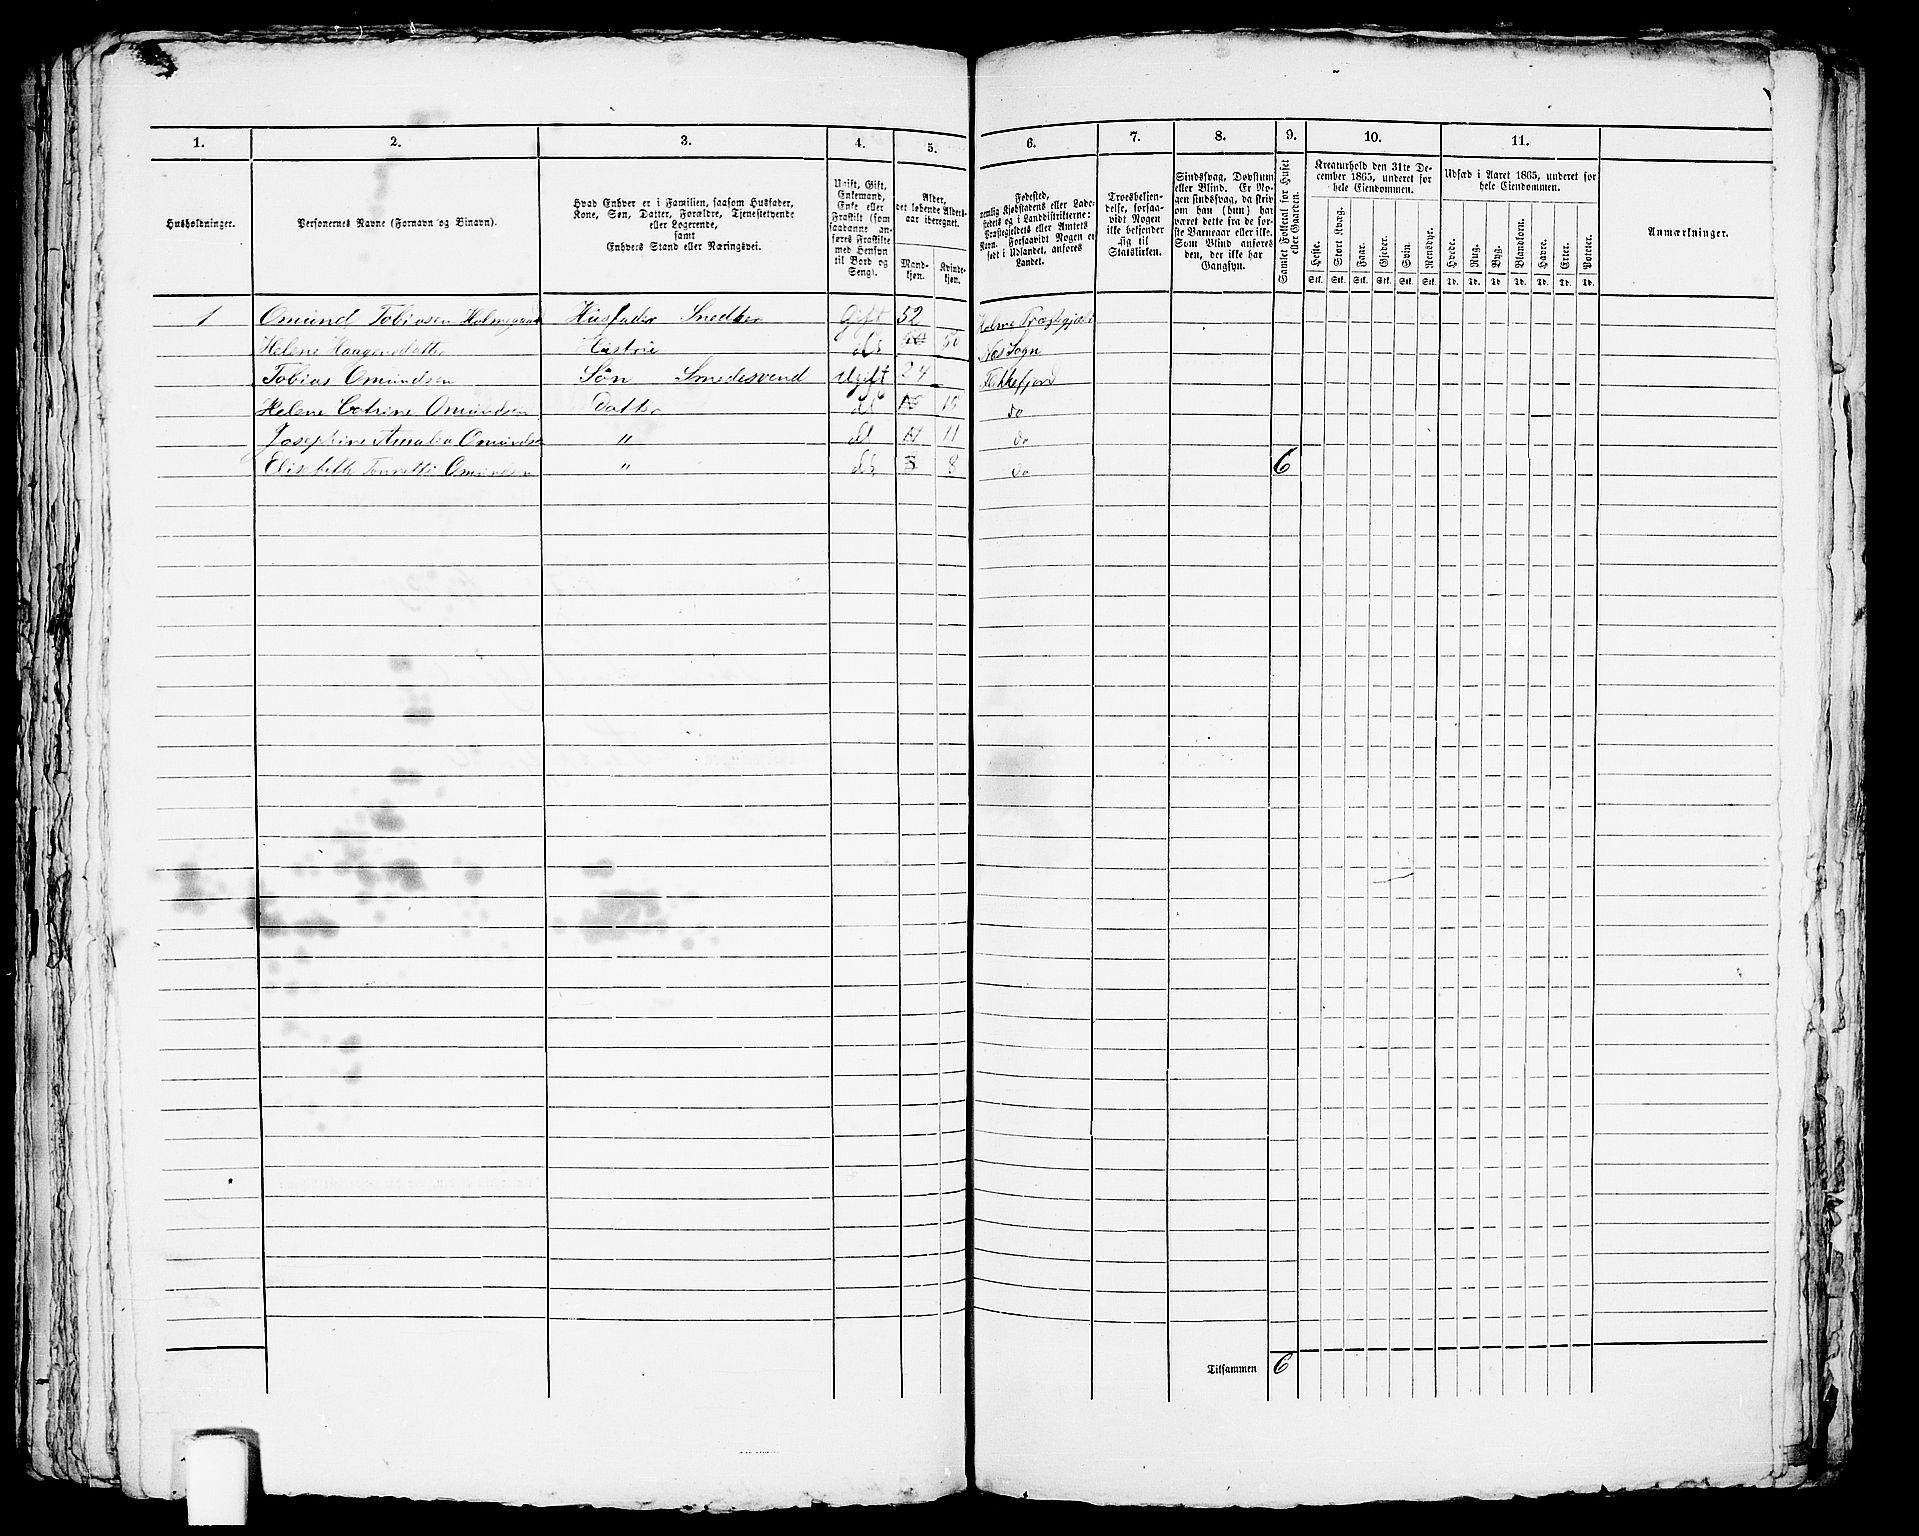 1. 2. 3. 4. 5. 6. 7. 8. 9. 10. 11.
Husholdninger.
Personernes Navne (Fornavn og Binavn).
Hvad Enhver er i Familien, saasom Husfader,
Kone, Søn, Datter, Forældre, Tjenestetyende
eller Logerende,
samt
Enhvers Stand eller Næringsvei.
Ugift, Gift,
Enkemand,
Enke eller
Fraskilt (som
saadanne an-
føres Fraskilte
med Hensyn
til Bord og
Seng).
Alder,
det løbende Alders-
aar iberegnet.
Mand-
kjøn.
Kvinde-
kjøn.
Fødested,
nemlig Kjøbstadens eller Lade-
stedets og i Landdistrikterne:
Præstegjældets eller Amtets
Navn. Forsaavidt Nogen er
født i Udlandet, anføres
Landet.
Troesbekjen-
delse, forsaa-
vidt Nogen
ikke bekjender
sig til
Statskirken.
Sindssvag, Døvstum
eller Blind. Er No-
gen sindssvag, da skriv
om han (hun) har
været dette fra de før-
ste Barneaar eller ikke.
Som Blind anføres
den, der ikke har
Gangsyn.
Samlet Folketal for Huset
eller Gaarden.
Kreaturhold den 31te De-
cember 1865, underet for
hele Eiendommen.
Heste.
Stort Kvæg.
Faar.
Gjeder.
Svin.
Rensdyr.
Stk. Stk. Stk. Stk. Stk. Stk.
Udsæd i Aaret 1865, underet for
hele Eiendommen.
Hvede.
Rug.
Byg.
Blandkorn.
Havre.
Erter.
Poteter.
Td. Td. Td. Td. Td. Td. Td.
Anmærkninger.
1 Omund Tobiasen Husfader Gift 52 Holme Præstegjæld
Helene Haagensdatter Hustru do 50 Næs Sogn
Tobias Omundsen Søn Smedesvend Ugift 24 Flekkefjord
Helene Catrine Omundsen Datter do 15 do
Josephine Amalia Omundsen " do 11 do
Elisabeth Omundsen " do 8 do 6
Tilsammen 6